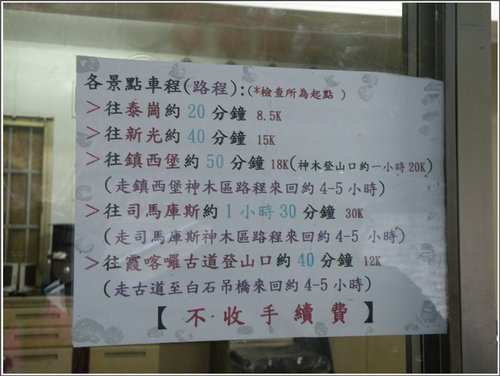 各景點車程(路程):(*檢查所為起點 )
>往泰崗約 20 分鐘 8.5K
>往新光約 40 分鐘 15K
>往鎮西堡約 50 分鐘 18K(神木登山口約一小時20K)
(走鎮西堡神木區路程來回約 4-5 小時)
>往司馬庫斯約 1 小時 30 分鐘 30K
(走司馬庫斯神木區路程來回約 4-5 小時)
>往霞喀囉古道登山口約 40 分鐘 12K
(走古道至白石吊橋來回約 4-5 小時)
【 不收手續費 】